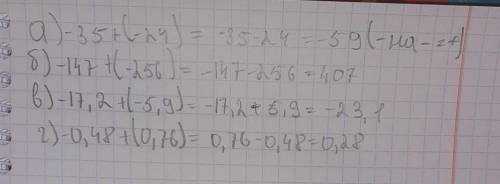 а) -35+(-24) = -35-24 = -59 (-на-=+)
б) -147+(-256) = -147-256=407
в) -17,2+(-5,9)= -17,2-5,9= -23,1
г) -0,48+(0,76)= 0,76-0,48=0,28